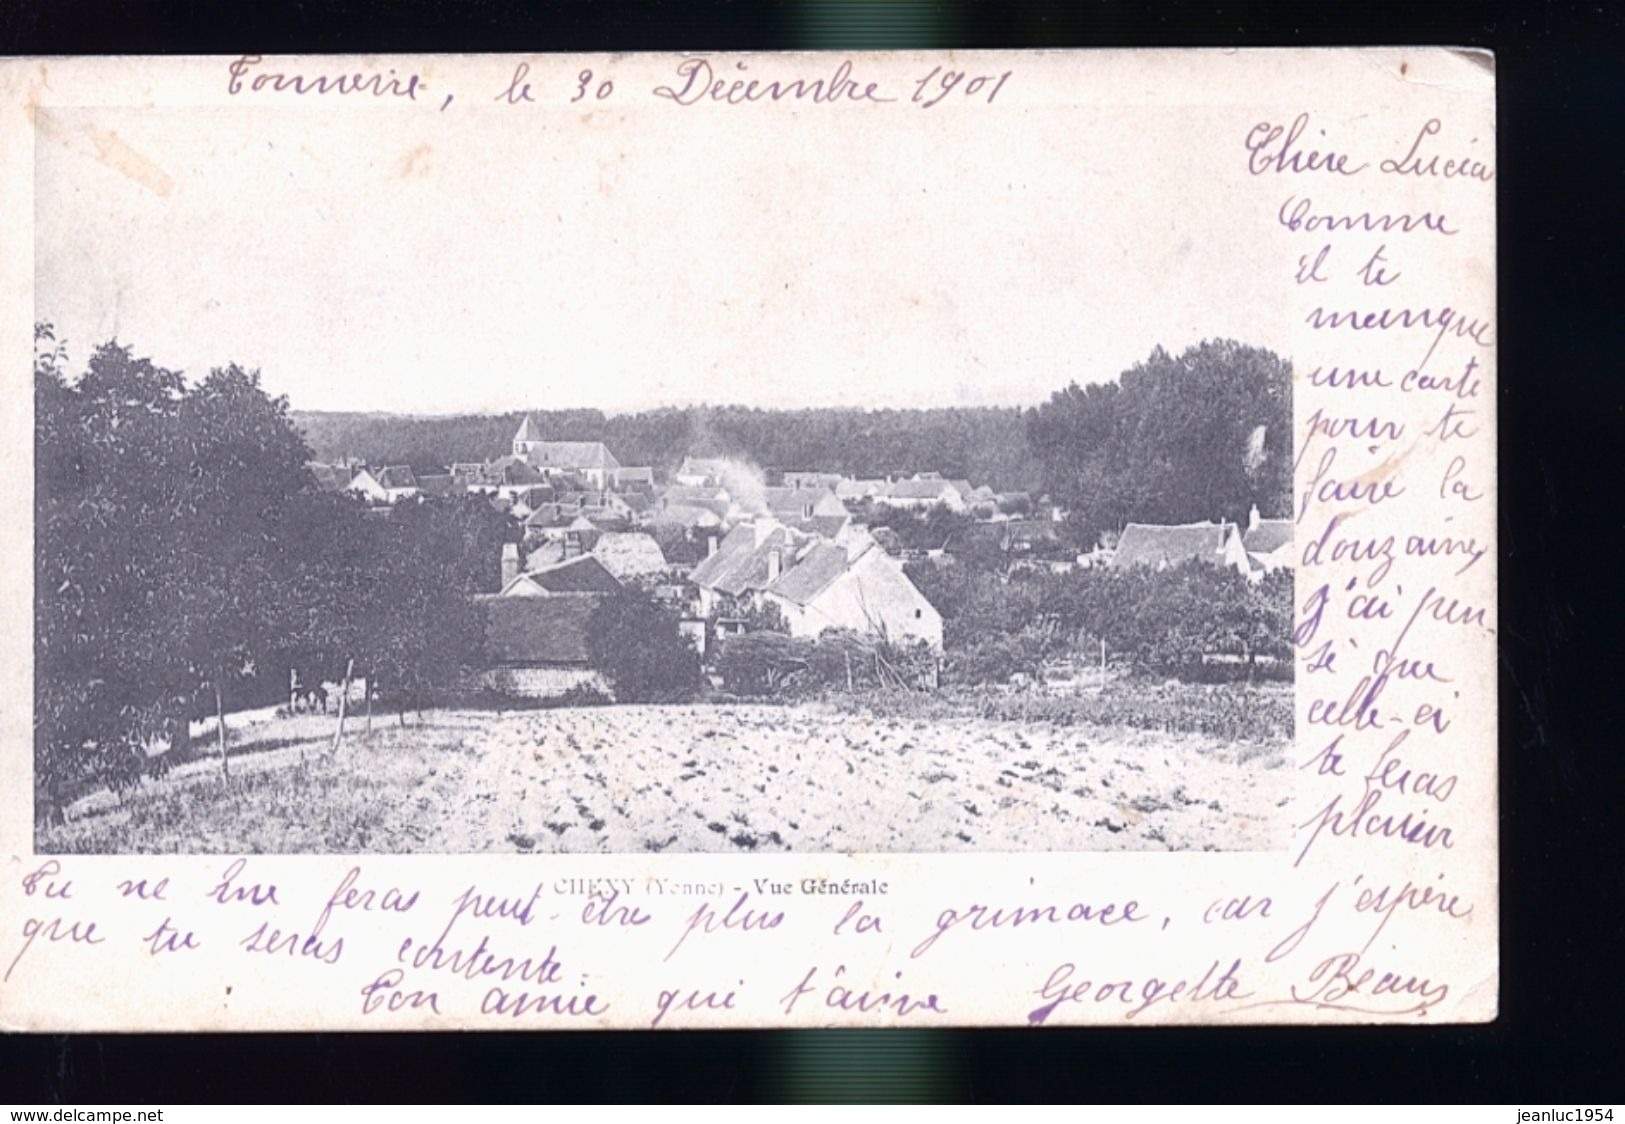 Tonnerre, le 30 Décembre 1901
Chère Lucia
Comme
il te
manque
une carte
pour te
faire la
douzaine,
j'ai pen-
sé que
celle-ci
te feras
plaisir
CHENY (Yonne) - Vue Générale
Tu ne me feras peut-être plus la grimace, car j'espère
que tu seras contente.
Ton amie qui t'aime Georgette
www.delcampe.net
jeanluc1954